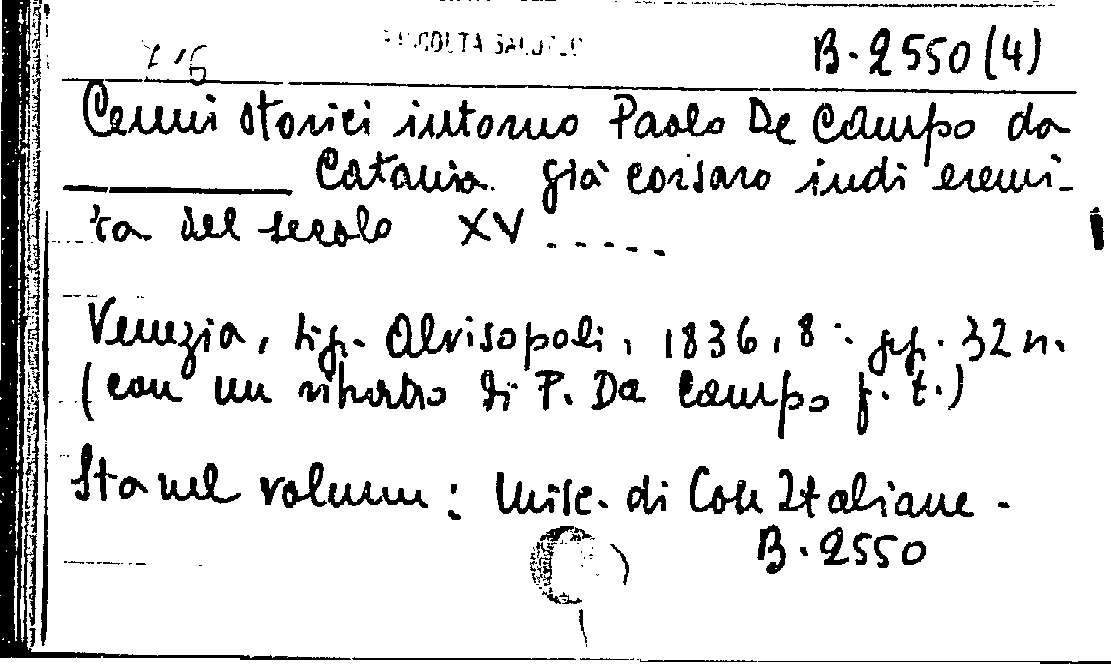 RACCOLTA
B. 2550 (4)
Cenni storici intorno Paolo De Campo da
Catania già corsaro indi eremi-
ta del secolo XV .....
Venezia, tip. Alvisopoli, 1836, 8° pp. 32 n.
(con un ritratto di P. Da Campo f. t.)
Sta nel volume: Misc. di Cose Italiane.
B. 2550